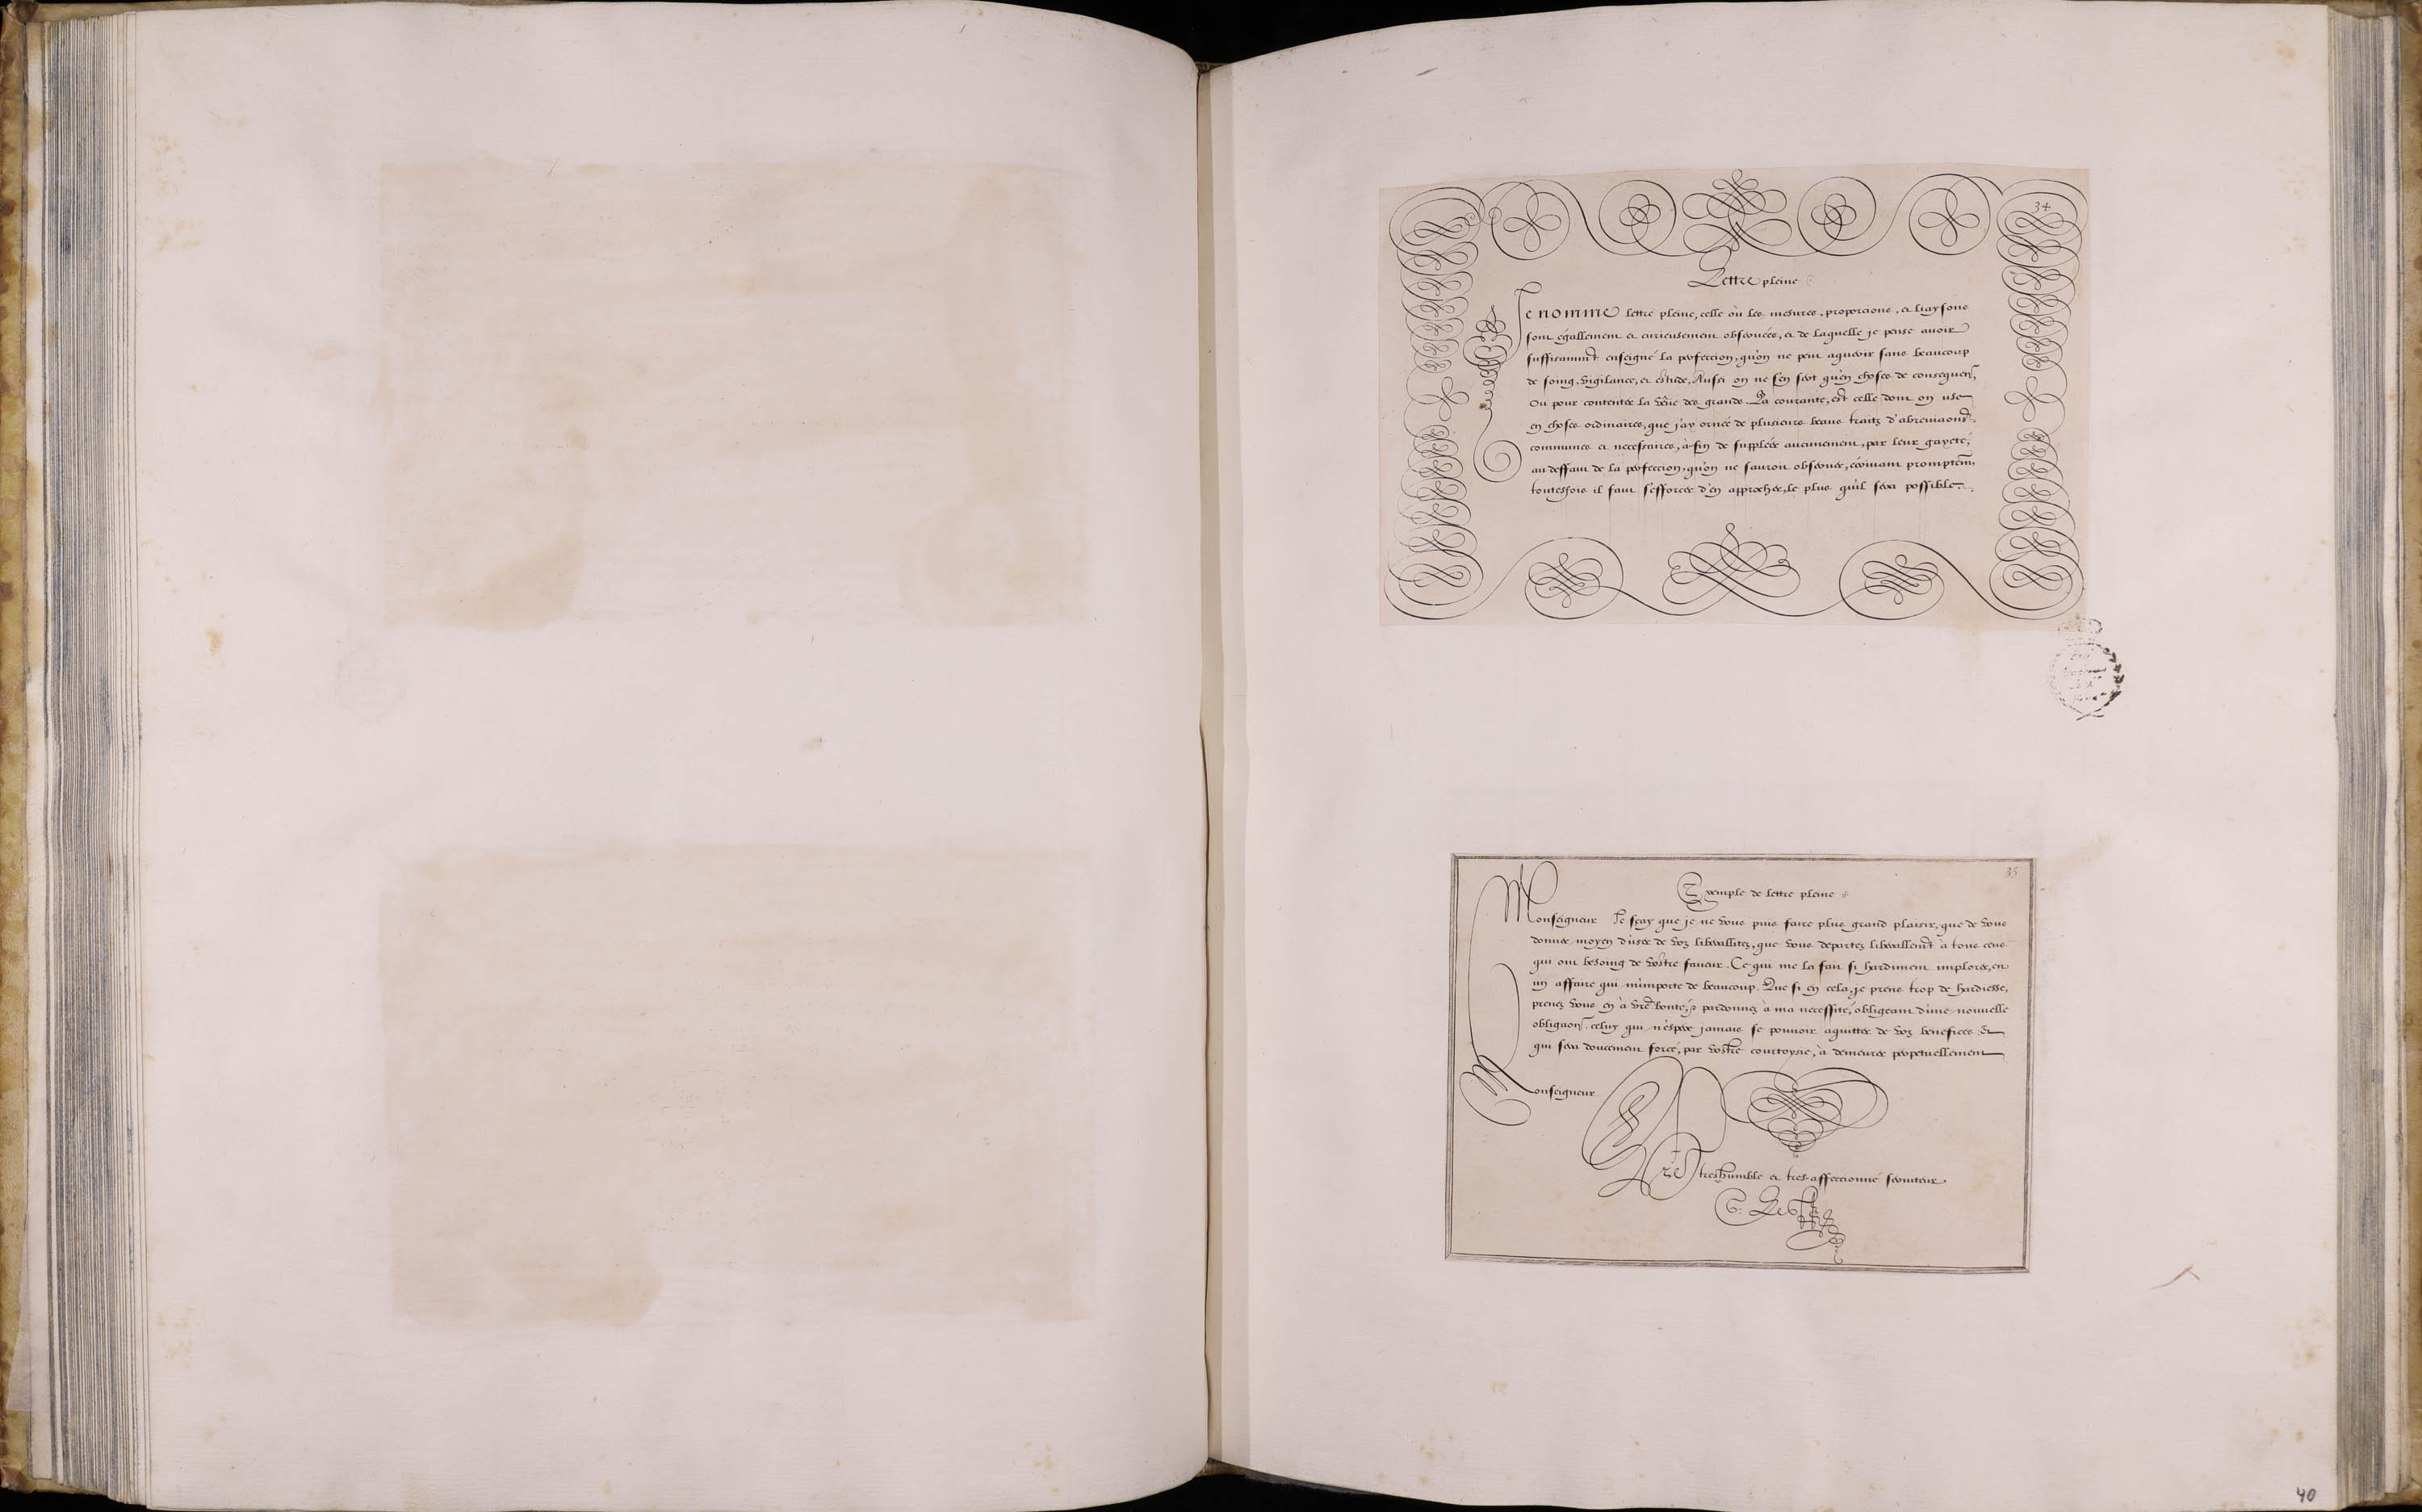 34
Lettre pleine
Je nomme lettre pleine, celle où les mesures, proporcions, et liaysons
sont égallement et curieusement observées, et de laquelle je pense avoir
suffisamm̃t enseigné la perfeccion, qu'on ne peut aquerir sans beaucoup
de soing, vigilance, et estude, Aussi on ne s'en sert qu'en choses de consequen̄,
Ou pour contenter la veüe des grands. La courante, est celle dont on use
en choses ordinaires, que j'ay ornée de plusieurs beaus traitz d'abreviaons,
communes et necessaires, à-fin de suppléer aucunement, par leur gayeté,
au deffaut de la perfeccion, qu'on ne sauroit observer, écrivant promptem̃,
toutesfois il faut s'efforcer d'en approcher, le plus qu'il sera possible.
35
Exemple de lettre pleine
Monseigneur Je sçay que je ne vous puis faire plus grand plaisir, que de vous
donner moyen d'user de voz liberallitez, que vous departez liberallem̃t à tous ceus
qui ont besoing de vostre faveur. Ce qui me la fait si hardiment implorer, en
un affaire qui m'importe de beaucoup. Que si en cela, je prens trop de hardiesse,
prenez vous en à vr̃e bonté, & pardonnez à ma necessité, obligeant d'une nouvelle
obligaon̄ celuy qui n'espere jamais se pouvoir aquitter de voz benefices, et
qui sera doucement forcé, par vostre courtoysie, à demeurer perpetuellement
Monseigneur
Vr̃e treshumble et tres-affeccionné serviteur
40